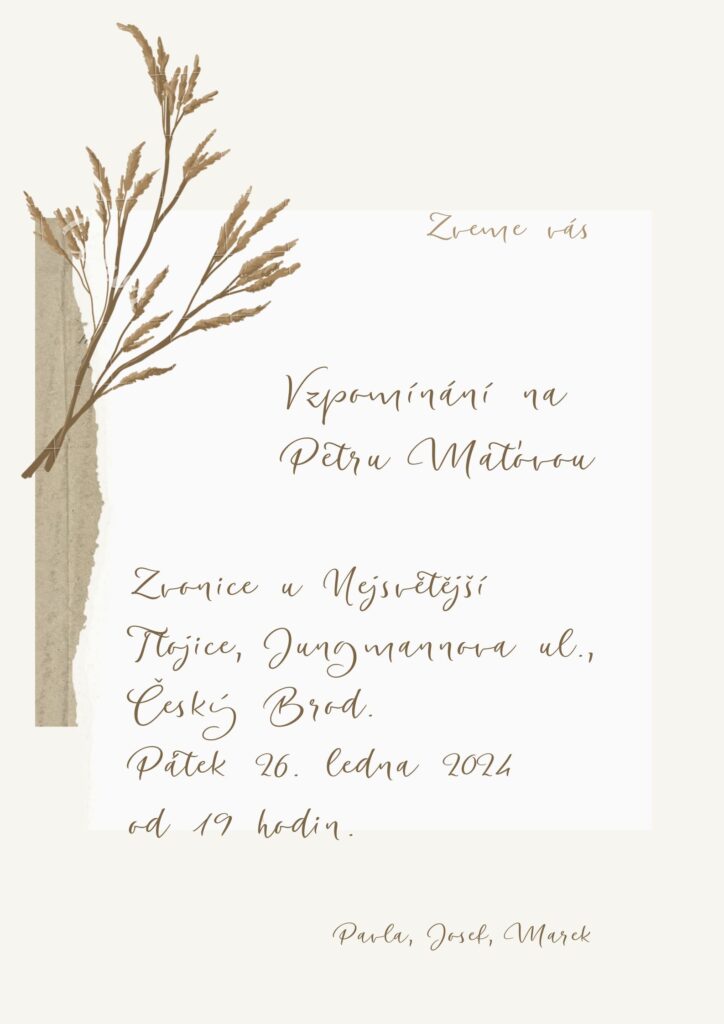 Zveme vás
Vzpomínání na
Petru Maťovou
Zvonice u Nejsvětější
Trojice, Jungmannova ul.,
Český Brod.
Pátek 26. ledna 2024
od 19 hodin.
Pavla, Josef, Marek